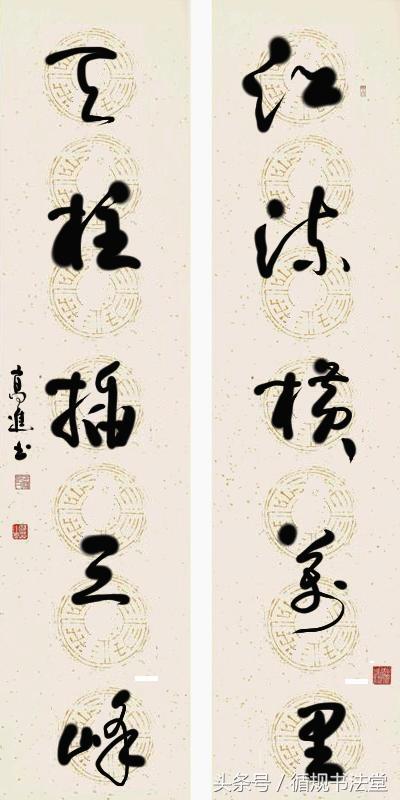 江流横萬里
天柱插三峰
高進书
头条号 / 循规书法堂